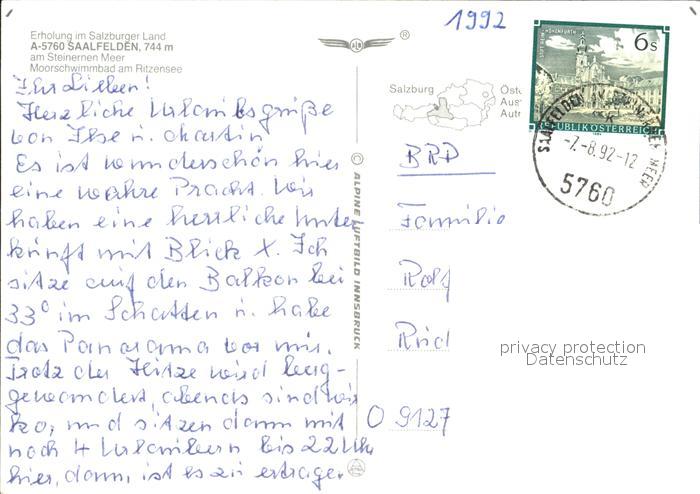 1992
Erholung im Salzburger Land
A-5760 SAALFELDEN, 744 m
am Steinernen Meer
Moorschwimmbad am Ritzensee
ALPINE LUFTBILD INNSBRUCK
Ihr Lieben!
Herzliche Urlaubsgrüße
von Ilse u. Martin
Es ist wunderschön hier
eine wahre Pracht. Wir
haben eine herrliche Unter
kunft mit Blick X. Ich
sitze auf den Balkon bei
33° im Schatten u. habe
das Panorama vor mir.
Trotz der Hitze wird berg-
gewandert, abends sind wir
ko, und sitzen dann mit
noch 4 Urlaubern bis 22 Uhr
hier, dann ist es zu ertragen.
Salzburg
6s
STIFT REIN-HOHENFURTH
REPUBLIK ÖSTERREICH
SAALFELDEN
-7.-8.92-12
5760
BRD
Familie
Rolf
Ried
O 9127
privacy protection
Datenschutz